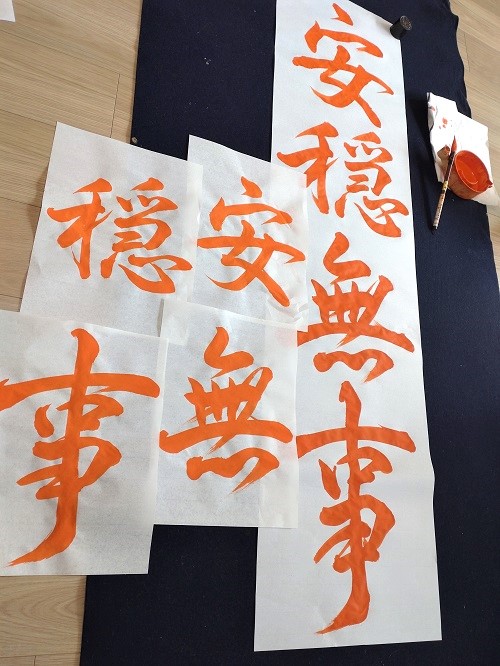 安穏無事
安
穏
無
事